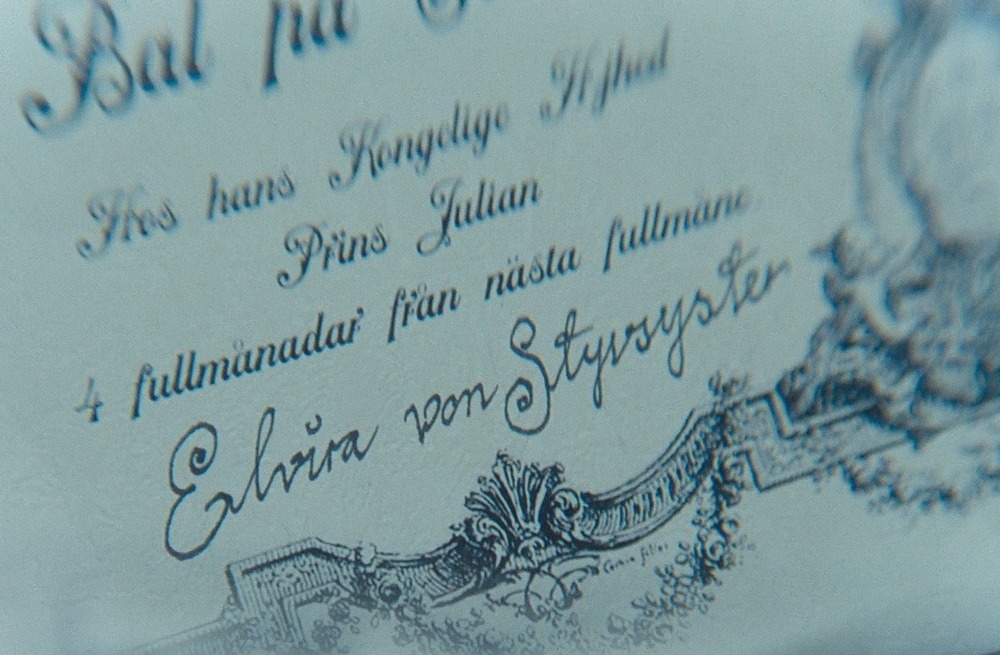 Bal på
Hos hans Kongelige Hjhed
Prins Julian
4 fullmånadar från nästa fullmåne
Elvira von Styvsyster